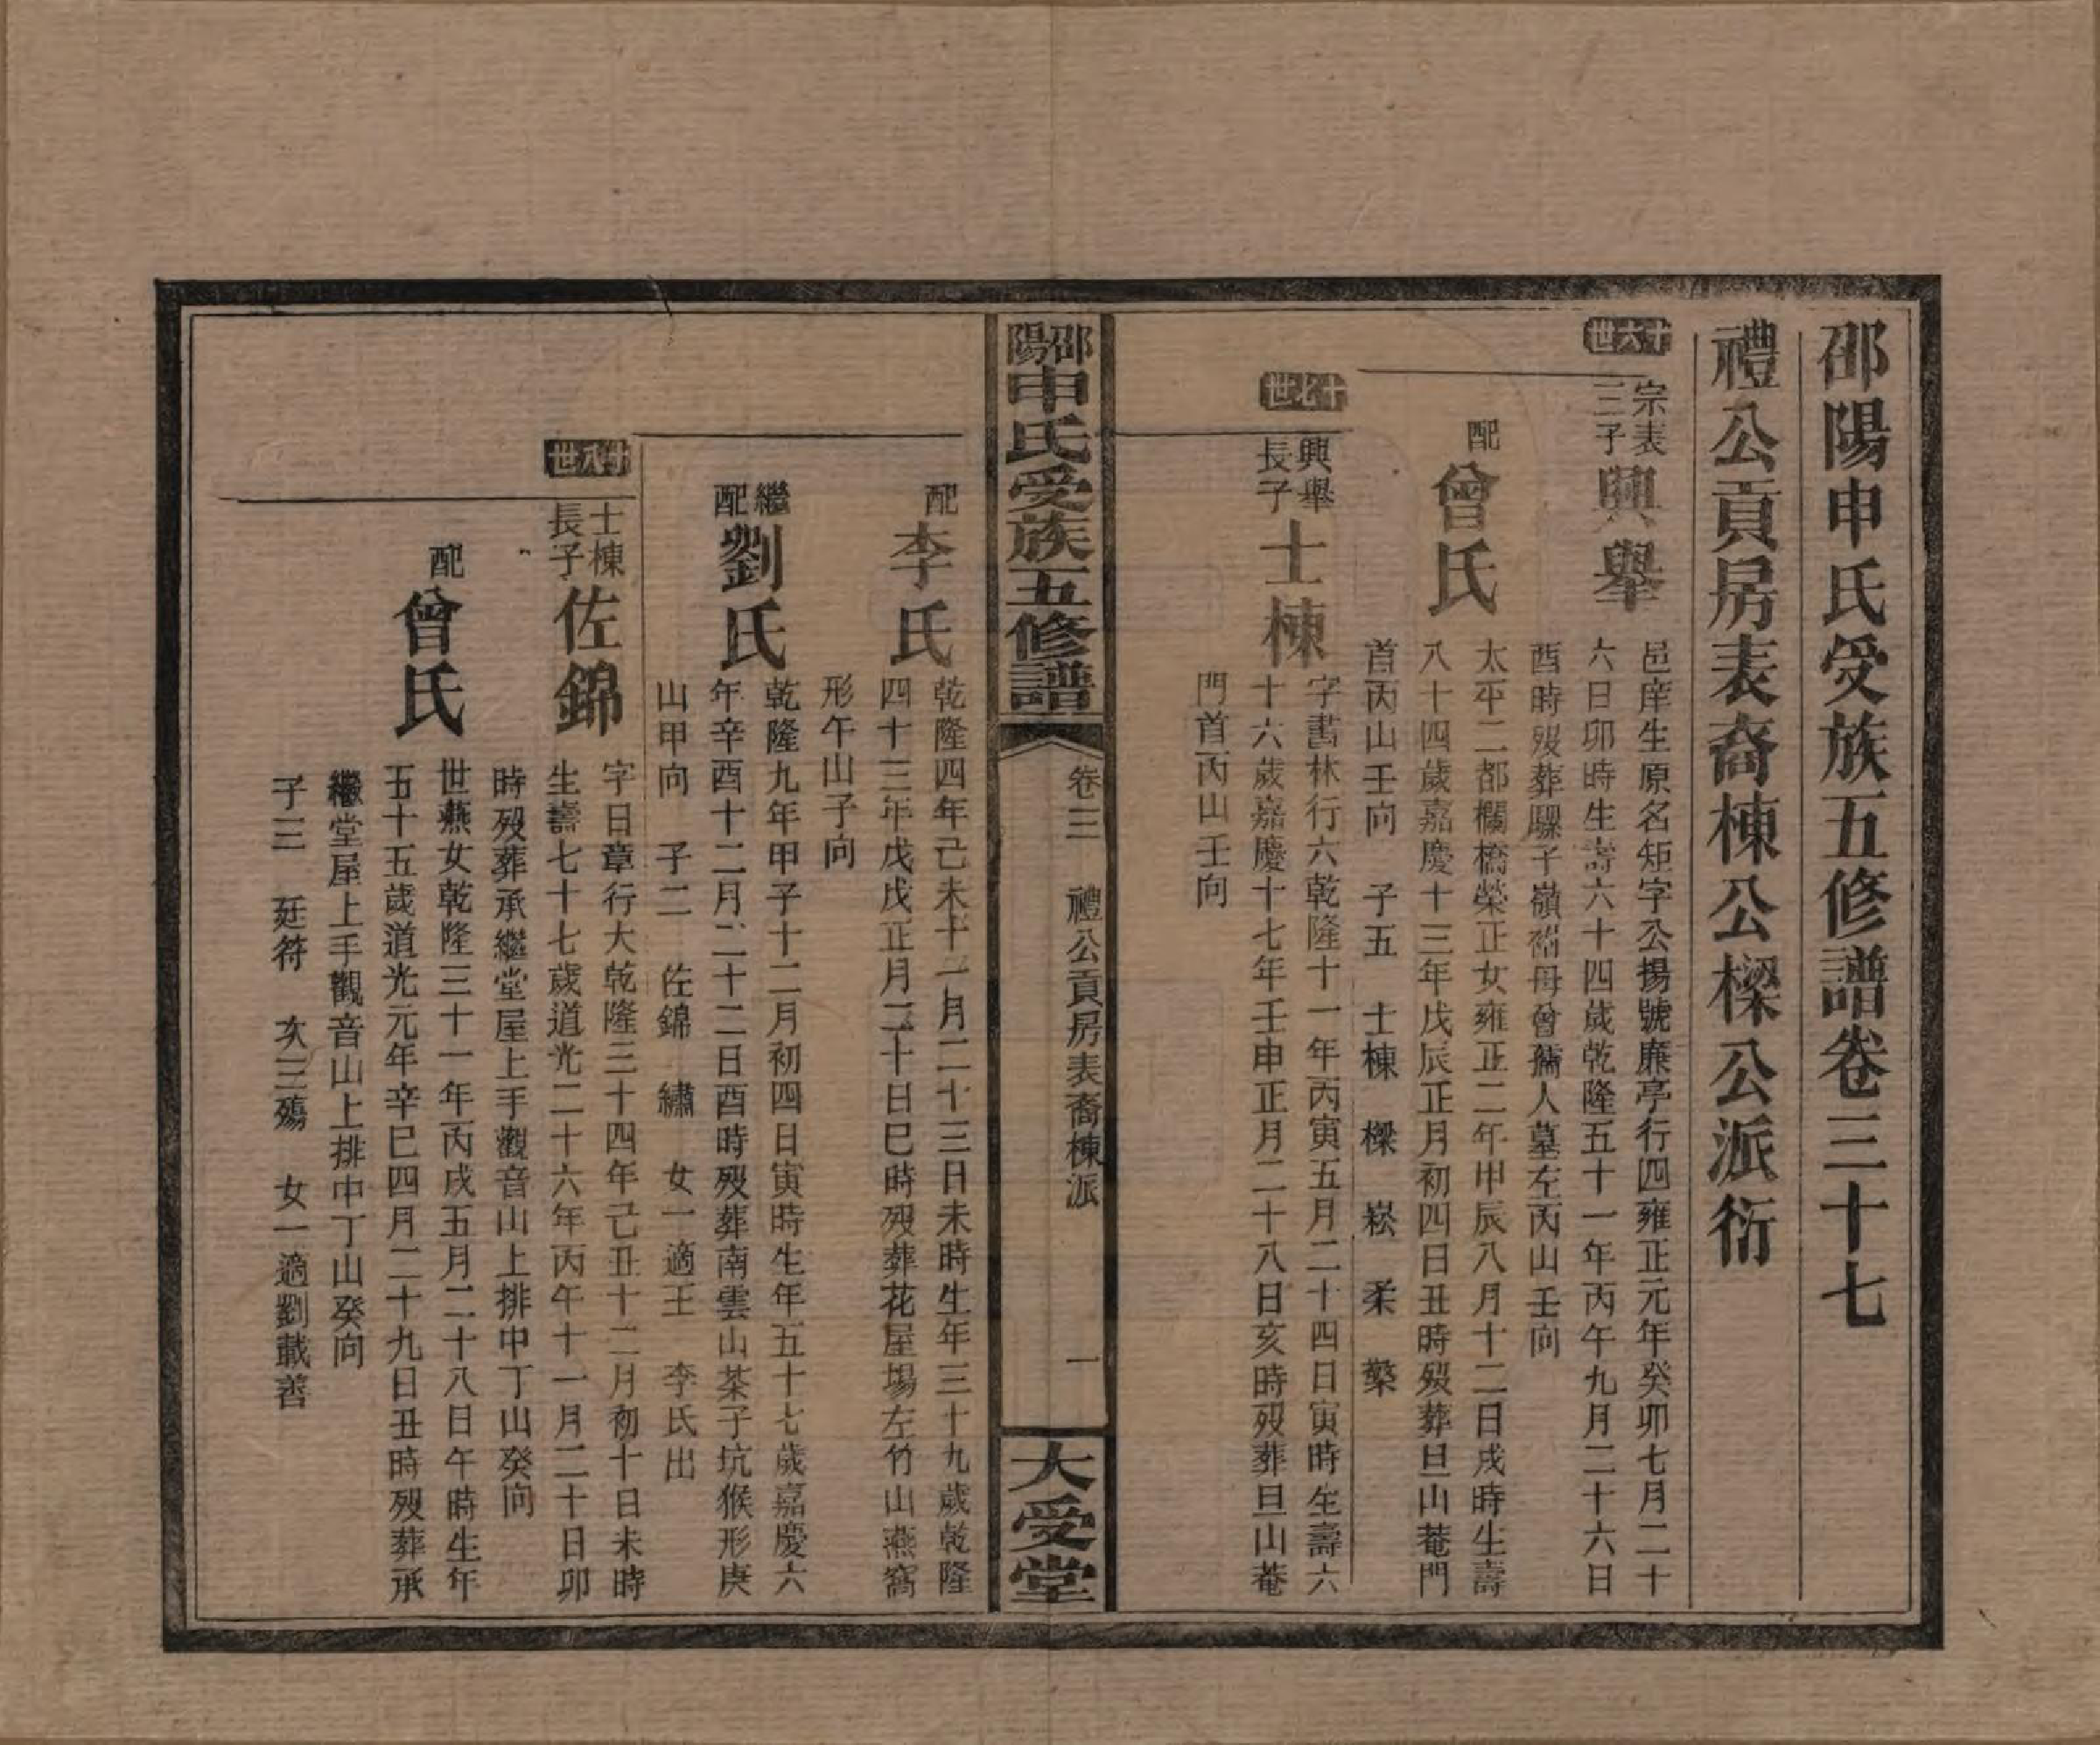 邵陽申氏受族五修譜卷三十七
禮公貢房表裔棟公樑公派衍
十六世
宗表
三子
興舉
邑庠生原名矩字公揚號廉亭行四雍正元年癸卯七月二十
六日卯時生壽六十四歲乾隆五十一年丙午九月二十六日
酉時歿葬騾子嶺祔母曾孺人墓左丙山壬向
配
曾氏
太平二都欄橋榮正女雍正二年甲辰八月十二日戌時生壽
八十四歲嘉慶十三年戊辰正月初四日丑時歿葬旦山菴門
首丙山壬向 子五 士棟 樑 崧 柔 櫱
十七世
興舉
長子
士棟
字書林行六乾隆十一年丙寅五月二十四日寅時生壽六
十六歲嘉慶十七年壬申正月二十八日亥時歿葬旦山菴
門首丙山壬向
邵陽申氏受族五修譜
卷三 禮公貢房表裔棟派
一
大受堂
配
李氏
乾隆四年己未十一月二十三日未時生年三十九歲乾隆
四十三年戊戌正月二十日巳時歿葬花屋場左竹山燕窩
形午山子向
繼
配
劉氏
乾隆九年甲子十二月初四日寅時生年五十七歲嘉慶六
年辛酉十二月二十二日酉時歿葬南雲山茶子坑猴形庚
山甲向 子二 佐錦 繡 女一適王 李氏出
十八世
士棟
長子
佐錦
字日章行大乾隆三十四年己丑十二月初十日未時
生壽七十七歲道光二十六年丙午十一月二十日卯
時歿葬承繼堂屋上手觀音山上排中丁山癸向
配
曾氏
世燕女乾隆三十一年丙戌五月二十八日午時生年
五十五歲道光元年辛巳四月二十九日丑時歿葬承
繼堂屋上手觀音山上排中丁山癸向
子三 廷符 次三殤 女一適劉載善